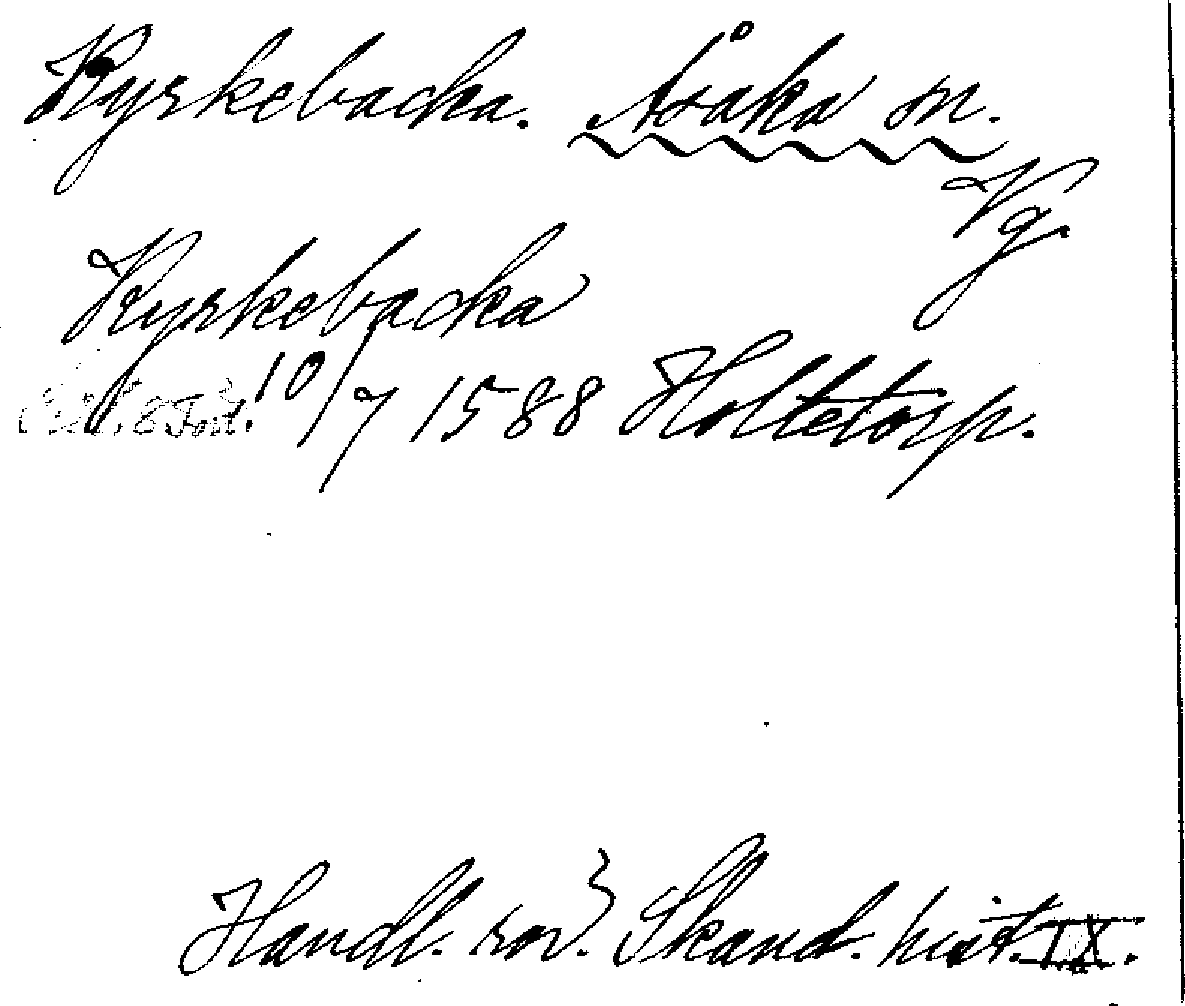 Kyrkebacka. Åsaka sn.
Vg.
Kyrkebacka
10/7 1588 Holtetorp.
Handl. rör. Skand. hist. IX.